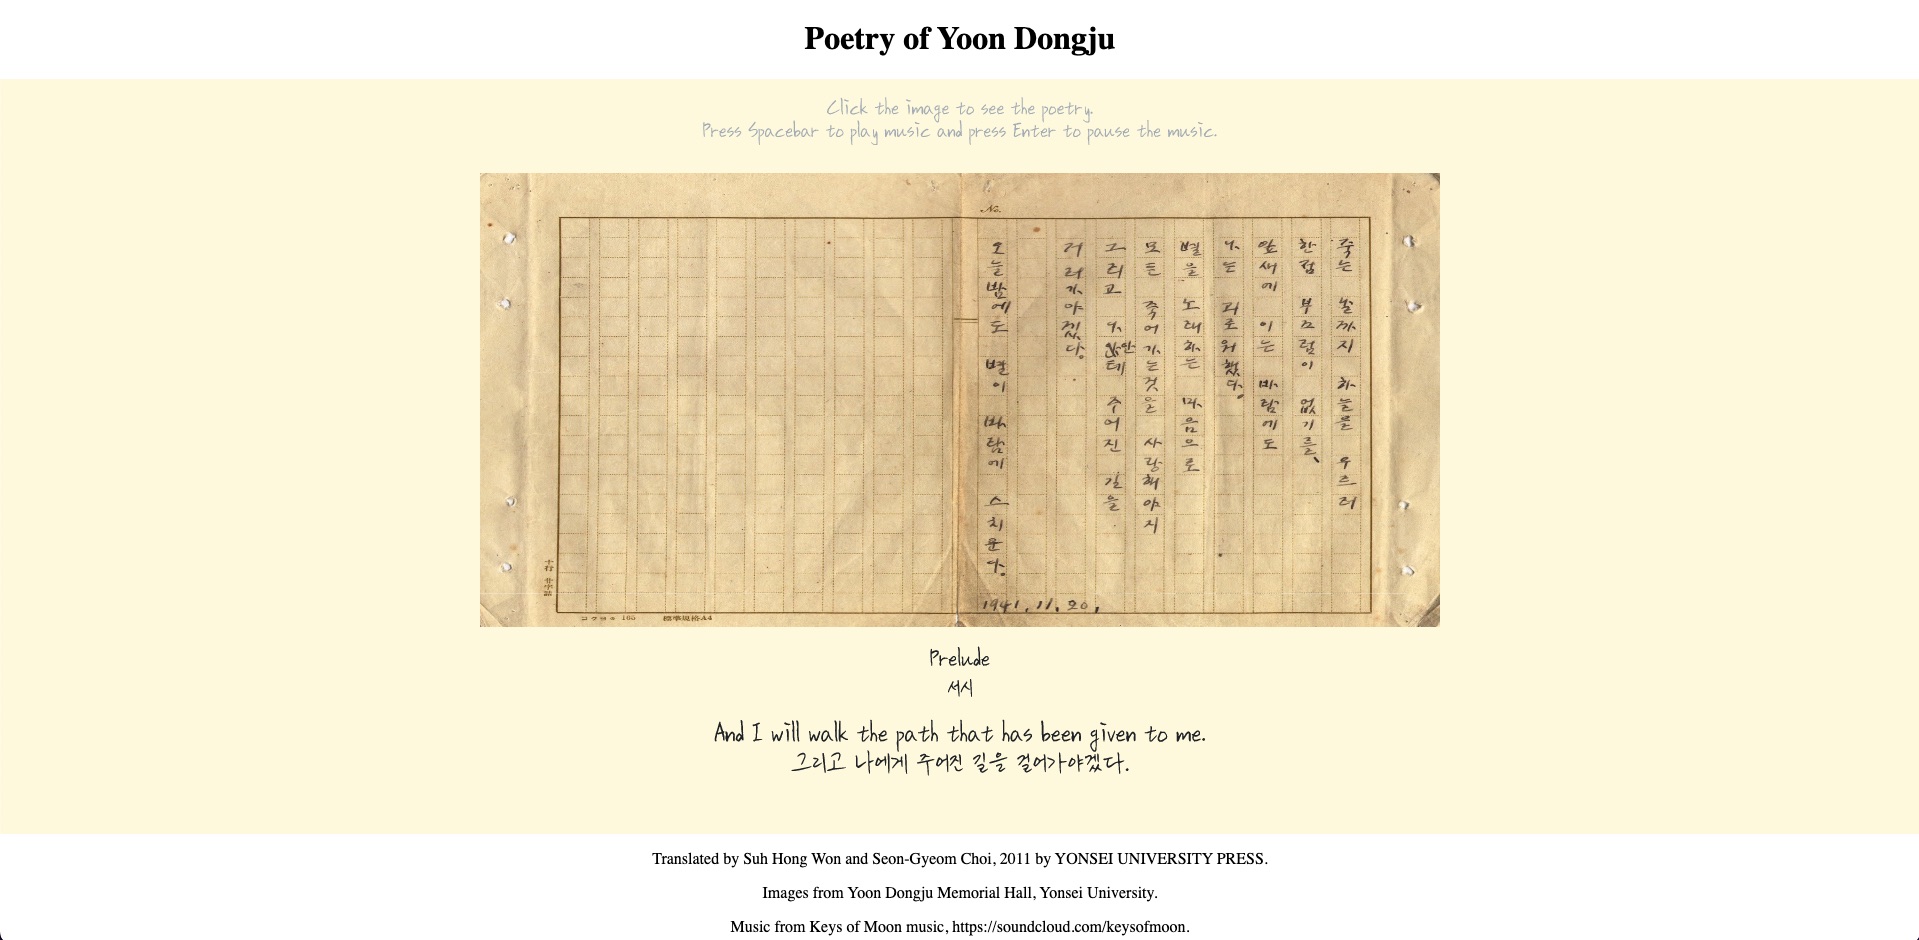 Poetry of Yoon Dongju
Click the image to see the poetry.
Press Spacebar to play music and press Enter to pause the music.
No.
죽는 날까지 하늘을 우르러
한점 부끄럼이 없기를、
잎새에 이는 바람에도
나는 괴로워했다.
별을 노래하는 마음으로
모든 죽어가는것을 사랑해야지
그리고 나안테 주어진 길을
거러가야겠다.
오늘밤에도 별이 바람에 스치운다.
1941.11.20.
十行 廿字詰
165 標準規格A4
Prelude
서시
And I will walk the path that has been given to me.
그리고 나에게 주어진 길을 걸어가야겠다.
Translated by Suh Hong Won and Seon-Gyeom Choi, 2011 by YONSEI UNIVERSITY PRESS.
Images from Yoon Dongju Memorial Hall, Yonsei University.
Music from Keys of Moon music, https://soundcloud.com/keysofmoon.